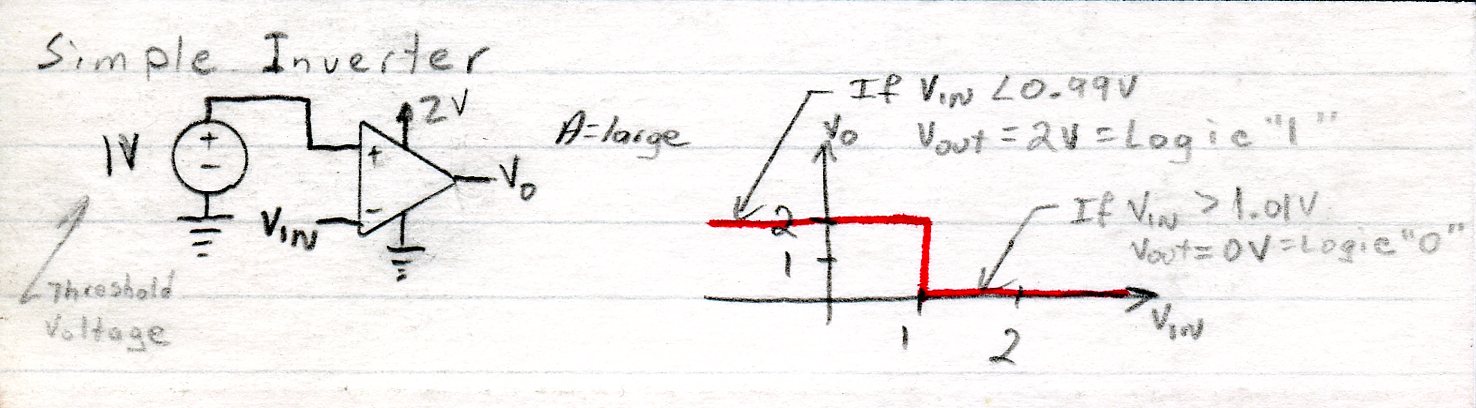 Simple Inverter
1V
+
-
2V
+
-
VIN
Vo
A=large
Threshold
Voltage
If VIN <0.99V
Vout = 2V = Logic "1"
Vo
2
1
If VIN >1.01V
Vout = 0V = Logic "0"
1
2
VIN